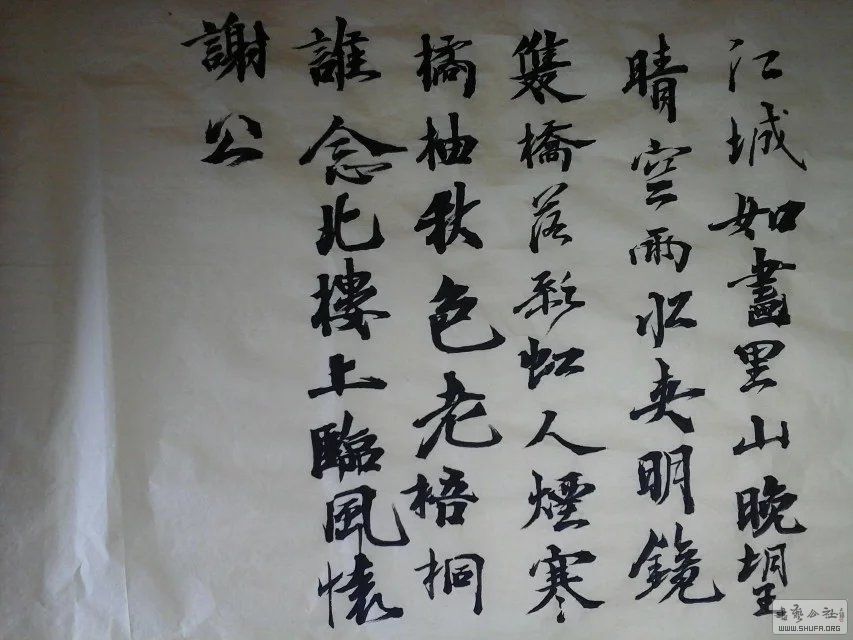 江城如畫里山晚望
晴空兩水夹明鏡
雙橋落彩虹人煙寒
橘柚秋色老梧桐
誰念北樓上臨風懷
謝公
书艺公社
WWW.SHUFA.ORG